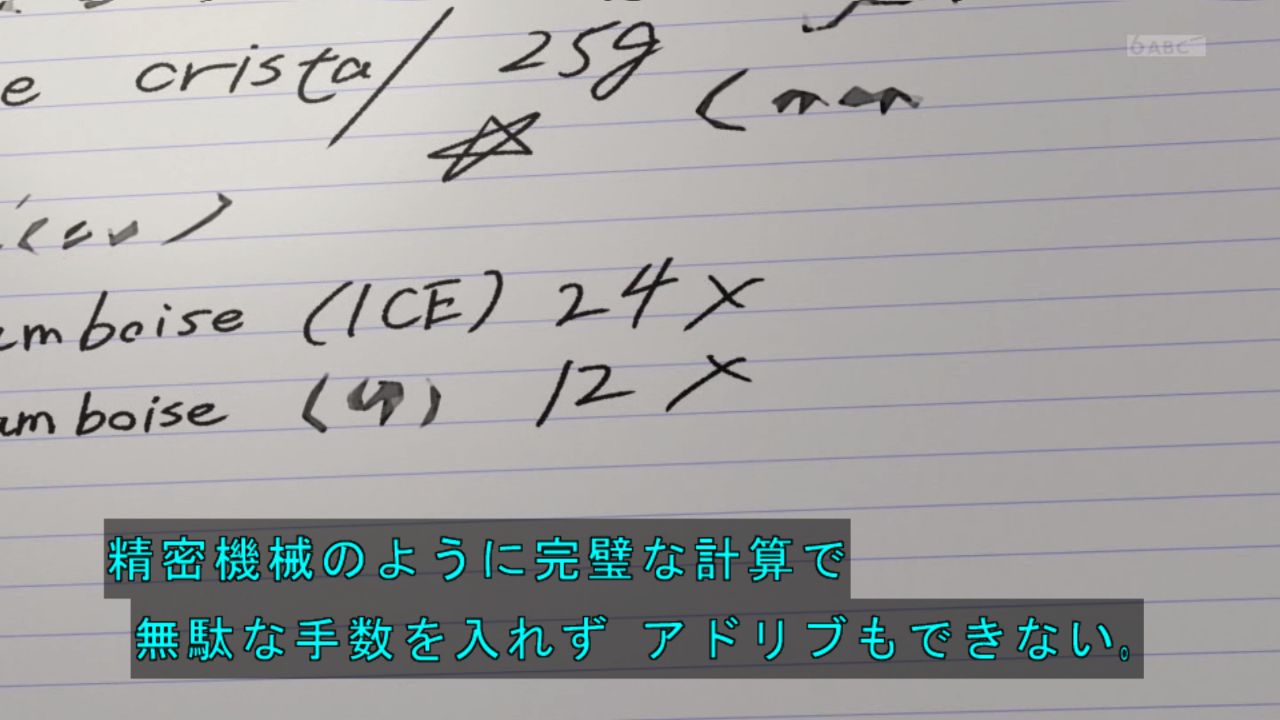 e crista/ 25g
amboise (ICE) 24×
amboise 12×
6 ABC
精密機械のように完璧な計算で
無駄な手数を入れず アドリブもできない。